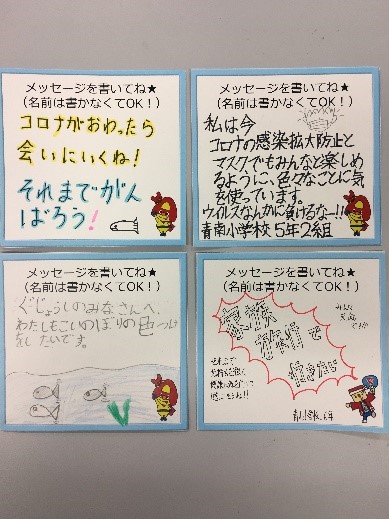 メッセージを書いてね★
(名前は書かなくてOK!)
コロナがおわったら
会いにいくね!
それまでがん
ばろう!
メッセージを書いてね★
(名前は書かなくてOK!)
私は今
コロナの感染拡大防止と
マスクでもみんなと楽しめ
るように、色々なことに気
を使っています。
ウイルスなんかに負けるなー!!
青南小学校5年2組
メッセージを書いてね★
(名前は書かなくてOK!)
ぐじょうしのみなさんへ
わたしもこいのぼりの色つけ
をしたいです。
メッセージを書いてね★
(名前は書かなくてOK!)